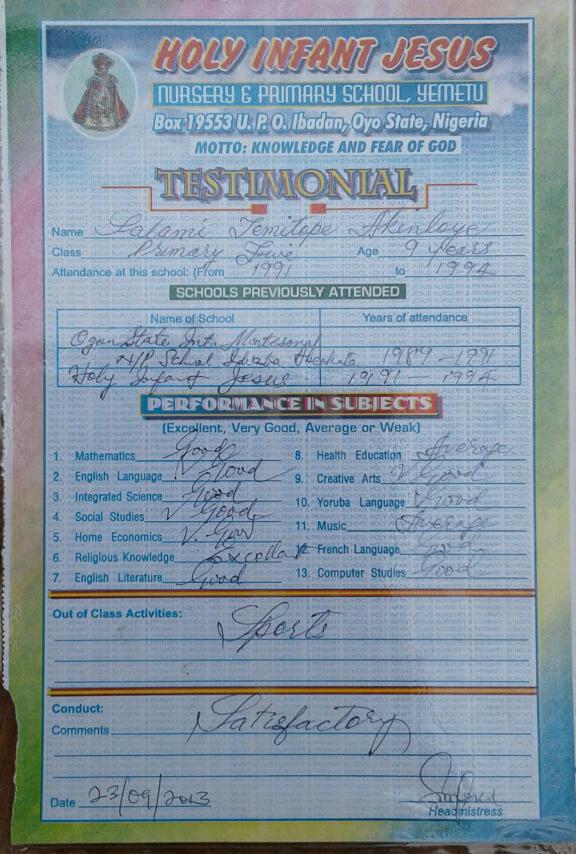 HOLY INFANT JESUS
NURSERY & PRIMARY SCHOOL, YEMETU
Box 19553 U. P. O. Ibadan, Oyo State, Nigeria
MOTTO: KNOWLEDGE AND FEAR OF GOD
TESTIMONIAL
Name Salami Temitope Akinloye
Class Primary Five Age 9 Years
Attendance at this school: (From 1991 to 1994
SCHOOLS PREVIOUSLY ATTENDED
Name of School Years of attendance
Ogun State Int. Montesorial
N/P School Abeokuta 1989 - 1991
Holy Infant Jesus 1991 1994
PERFORMANCE IN SUBJECTS
(Excellent, Very Good, Average or Weak)
1. Mathematics Good 8. Health Education Average
2. English Language V. Good 9. Creative Arts V. Good
3. Integrated Science Good 10. Yoruba Language V. Good
4. Social Studies V. Good 11. Music Average
5. Home Economics V. Good 12. French Language
6. Religious Knowledge Excellent 13. Computer Studies Good
7. English Literature Good
Out of Class Activities:
Sports
Conduct:
Comments Satisfactory
Date 23/09/2013
Headmistress